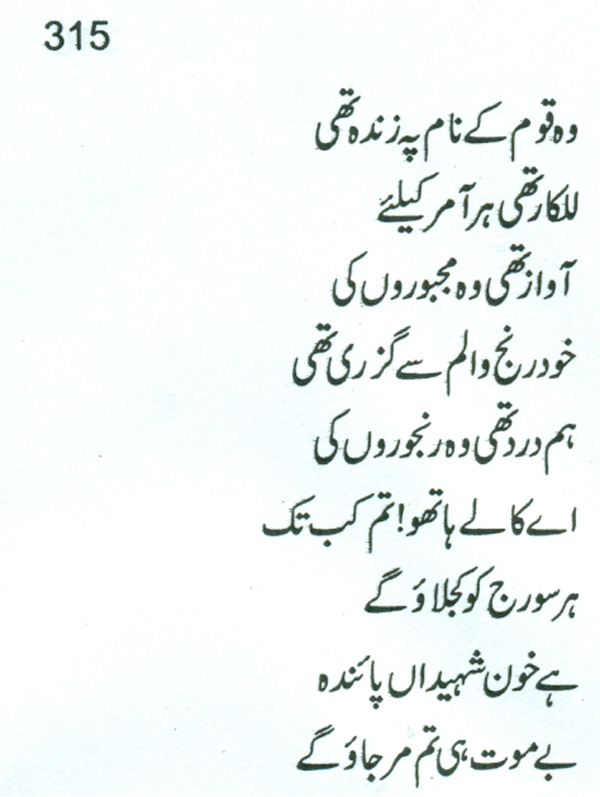 315
وہ قوم کے نام پہ زندہ تھی
للکار تھی ہر آمر کیلئے
آواز تھی وہ مجبوروں کی
خود رنج و الم سے گزری تھی
ہم درد تھی وہ رنجوروں کی
اے کالے ہاتھو! تم کب تک
ہر سورج کو کجلاؤ گے
ہے خون شہیداں پائندہ
بے موت ہی تم مر جاؤ گے